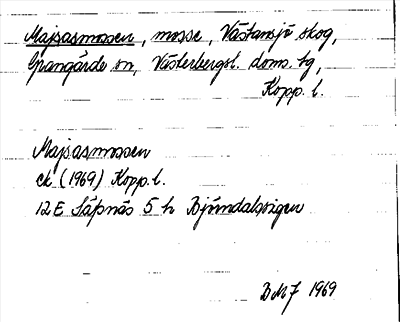 Majsasmossen, mosse, Västansjö skog,
Grangärde sn, Västerbergsl. doms. tg,
Kopp. l.
Majsasmossen
ek (1969) Kopp. l.
12E Säfsnäs 5 h Björndalstigen
BMJ 1969